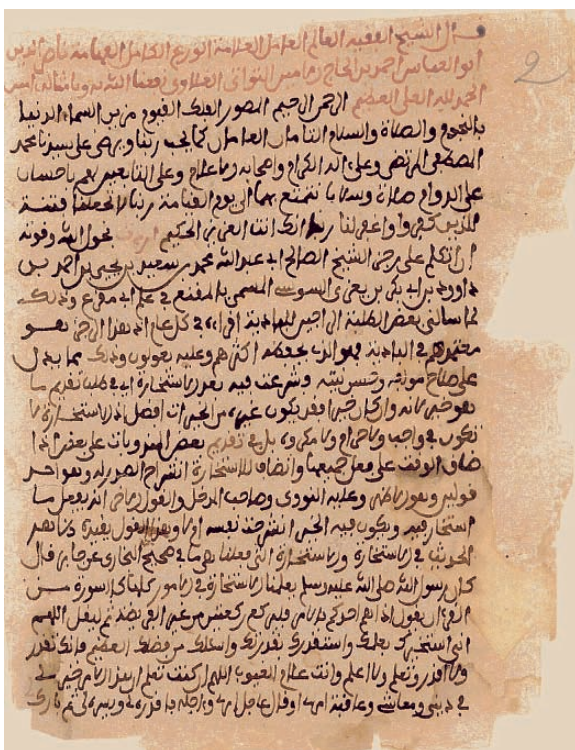 قال الشيخ الفقيه العالم العامل العلامة الورع الكامل
أبو العباس احمد بن الحاج
الحمد لله العلي العظيم الرحمن الرحيم المصور الملك القيوم مزين السماء الدنيا
بالنجوم والصلاة والسلام التامان العامان كما يحب ربنا ويرضى على سيدنا محمد
المصطفى المرتضى وعلى اله الكرام واصحابه وعلى التابعين لهم باحسان
على الدوام صلاة وسلاما نتمتع بهما الى يوم القيامة ربنا لا تجعلنا فتنة
للذين كفروا واغفر لنا ربنا انك انت العزيز الحكيم بحول الله وقوته
ان اتكلم على رجز الشيخ الصالح ابي عبد الله محمد بن سعيد بن يحيى بن احمد بن
داوود بن ابي بكر بن يعزى السوسي المسمى بالمقنع في علم ابي مقرع وذلك
لما سالني بعض الطلبة في كل عام اذ هذا الرجز هو
معتمدهم في البادية فهو الذي يحفظه اكثرهم وعليه يعولون وذلك مما يدل
على صلاح مؤلفه وحسن نيته وشرعت فيه بعد الاستخارة اي في طلب تقديم ما
هو خير لانه وان كان خيرا فقد يكون غيره من الخيرات افضل اذ الاستخارة لا
تكون في واجب ولا حرام ولا مكروه بل في تقديم بعض المندوبات على بعض اذا
ضاق الوقت على فعل جميعها وانضاف للاستخارة انشراح الصدر له وهو احد
قولين وعليه النووي وصاحب المدخل والقول الاخر انه يفعل ما
استخار فيه ويكون فيه الخير انشرحت نفسه ام لا وهذا القول
الحديث في الاستخارة والاستخارة التي فعلنا هي ما في صحيح البخاري عن جابر قال
كان رسول الله صلى الله عليه وسلم يعلمنا الاستخارة في الامور كلها كالسورة من
القرءان يقول اذا هم احدكم بالامر فليركع ركعتين من غير الفريضة ثم ليقل اللهم
اني استخيرك بعلمك واستقدرك بقدرتك واسئلك من فضلك العظيم فانك تقدر
ولا اقدر وتعلم ولا اعلم وانت علام الغيوب اللهم ان كنت تعلم ان هذا الامر خير لي
في ديني ومعاشي وعاقبة امري او قال عاجل امري وءاجله فاقدره لي ويسره لي ثم بارك
2